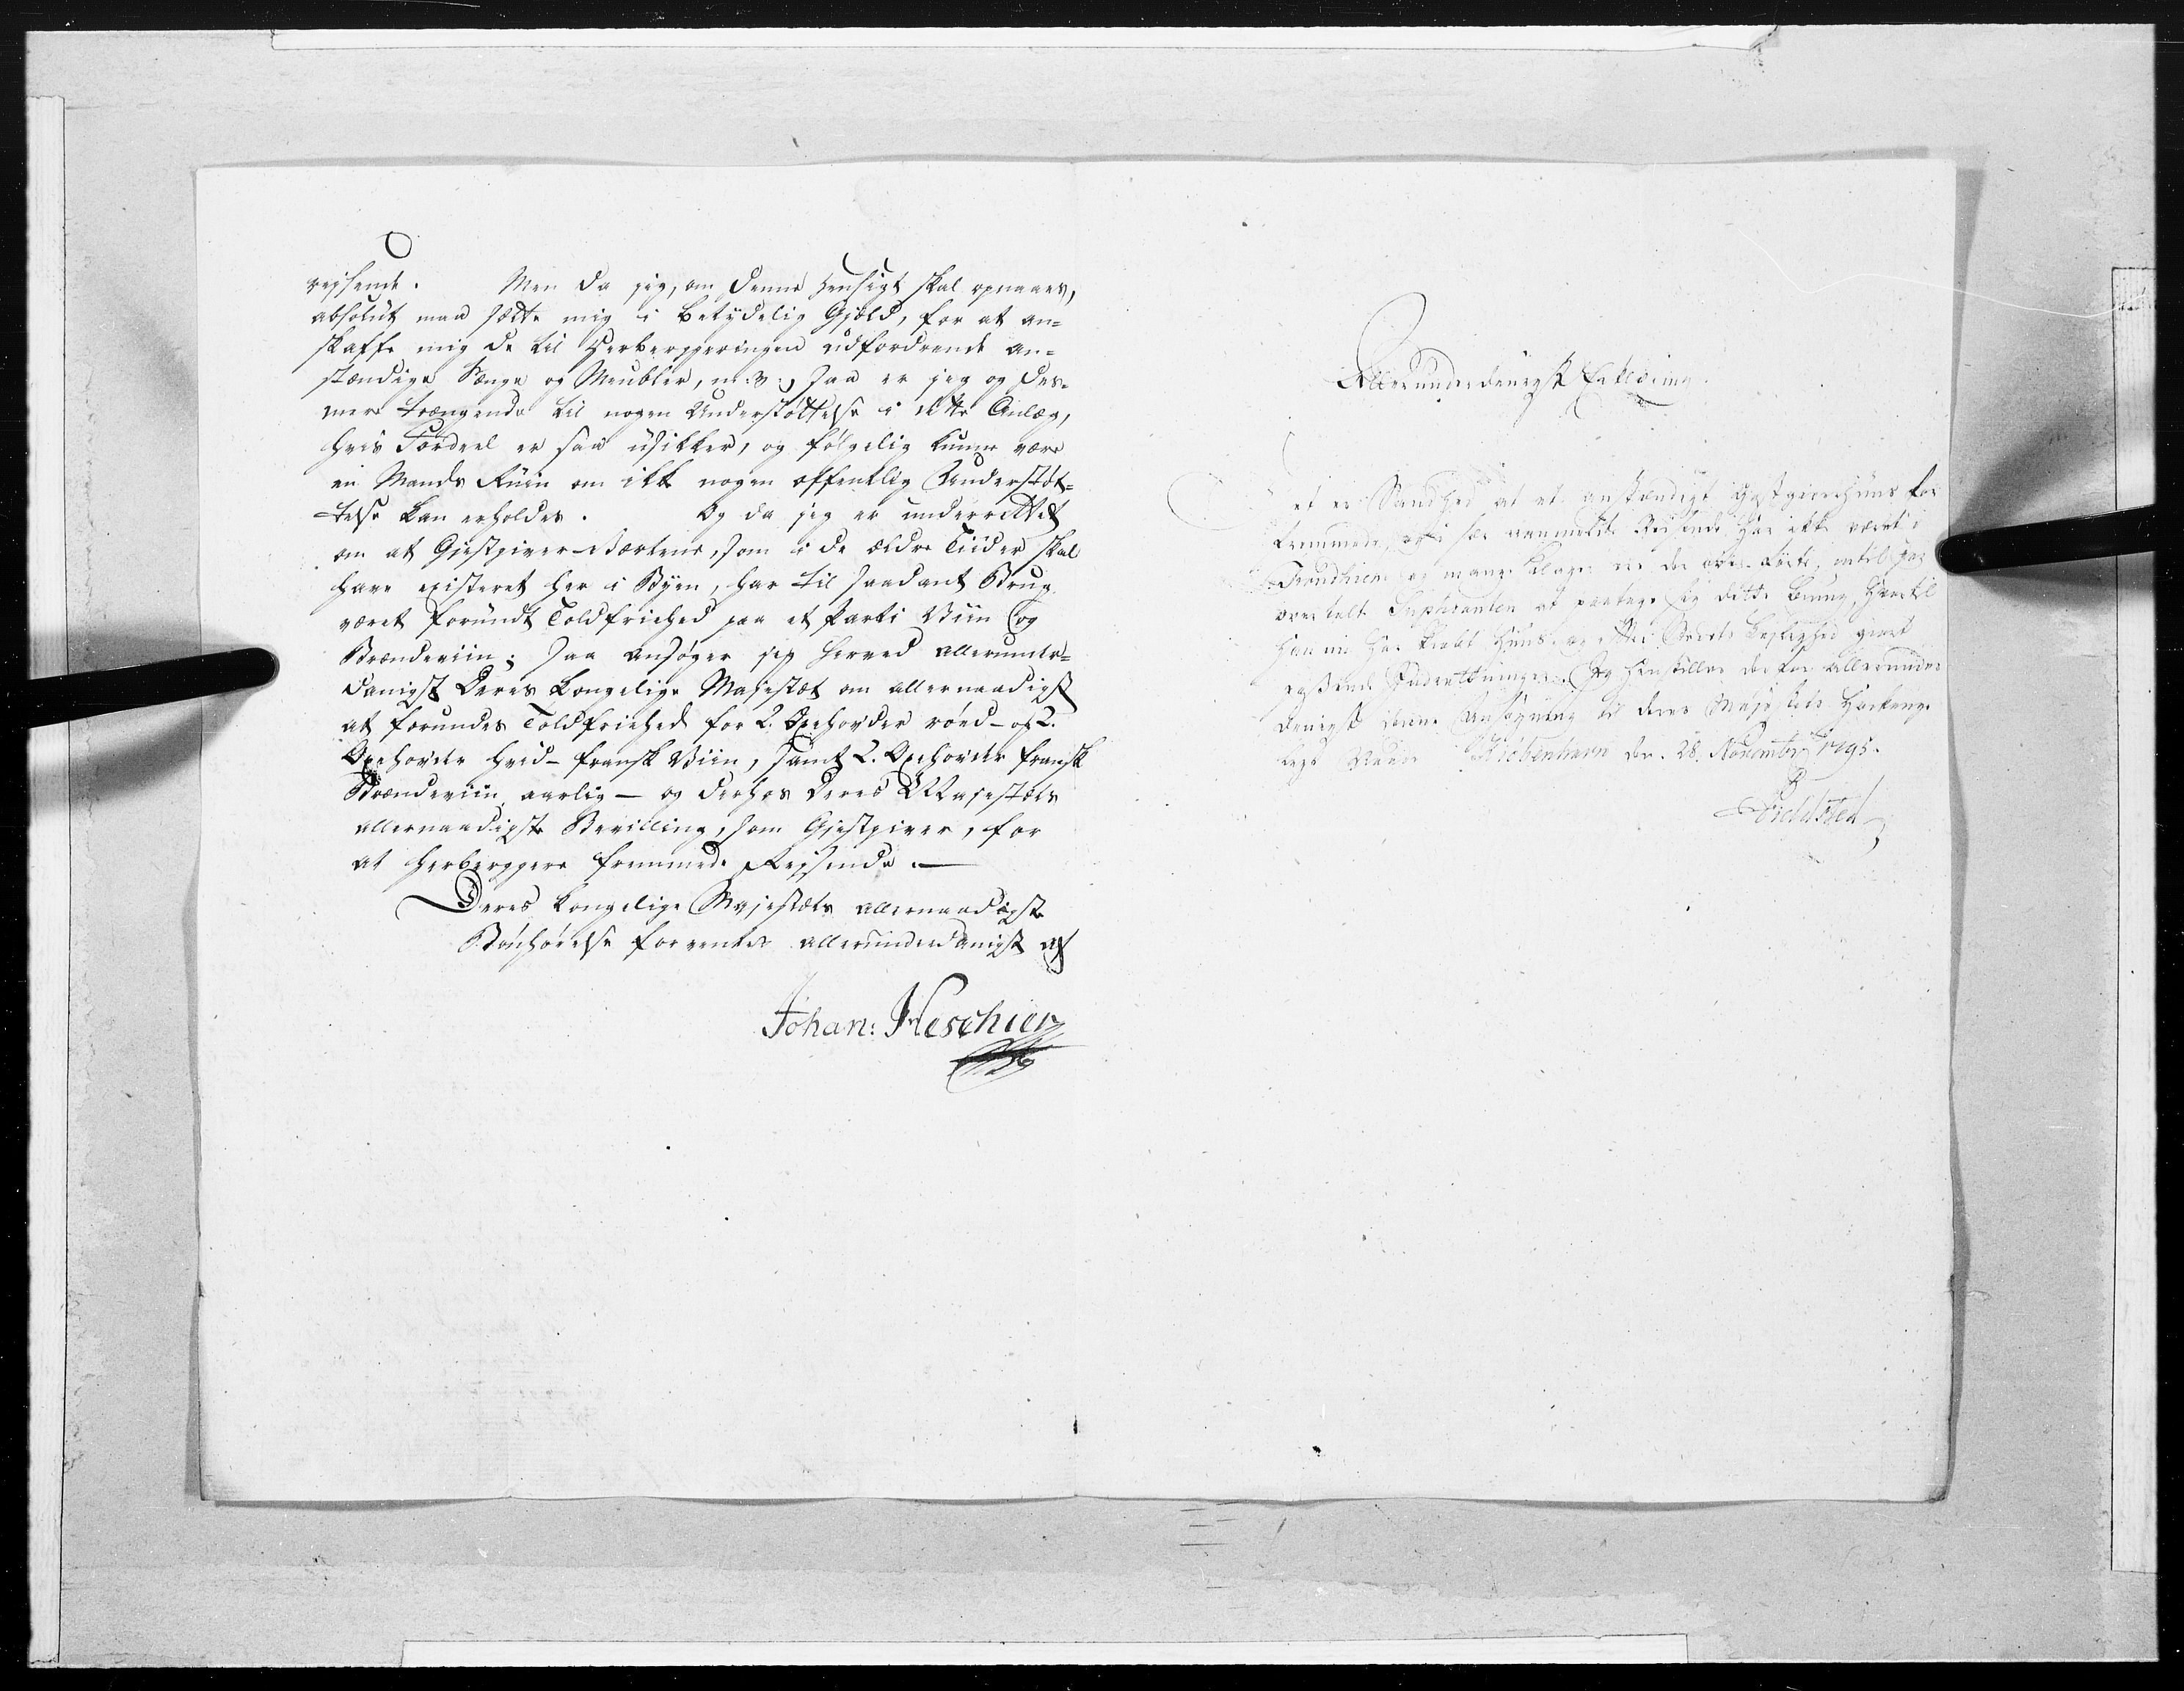 rejsende. Men da jeg, om denne Hensigt skal opnaaes,
absolut maa sætte mig i betydelig Gjæld, for at an=
skaffe mig de til Herbergeringen udfordrende an=
stændige Senge og Meubler, m: v:, saa er jeg og des=
mere trængende til nogen Understøttelse i dette Anlæg,
hvis Fordeel er saa usikker, og følgelig kunne være
en Mands Ruin om ikke nogen offentlig Understøt=
telse kan erholdes. Og da jeg er underrettet
om at Gjestgiver-Værterne, som i de ældre Tiider skal
have existeret her i Byen, har til saadant Brug
været forundt Toldfriehed paa et Parti Viin og
Brændeviin; saa ansøger jeg herved allerunder=
danigst Deres Kongelige Majestæt om allernaadigst
at forundes Toldfriehed for 2. Oxehovder røed- og 2.
Oxehovder hvid- fransk Viin, samt 2. Oxehovder fransk
Brændeviin aarlig — og derhos Deres Majestæts
allernaadigste Bevilling, som Gjestgiver, for
at herbergere fremmede Rejsende. —
Deres Kongelige Majestæts allernaadigste
Bønhørelse forventes allerunderdanigst af
Johan: Heschier
Allerunderdanigst Erklæring.
et er Sandhed at et anstændigt Giestgiverhuus for
Fremmede, og i sær ansatte Reisende har ikke været i
Trondhiem og mange Klager ere der over førte, indtil jeg
overtalt Suplicanten at paatage sig dette Brug, hvortil
han nu har kiøbt Huus og efter Stæds Beskaffenhed giort
passende Indretninger. Jeg henstiller derfor allerunder
danigst denne Ansøgning til Deres Majestæts
Kiøbenhavn den 28. Novembr 1795.